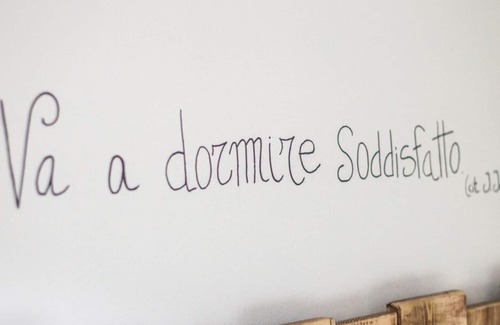 Va a dormire Soddisfatto.